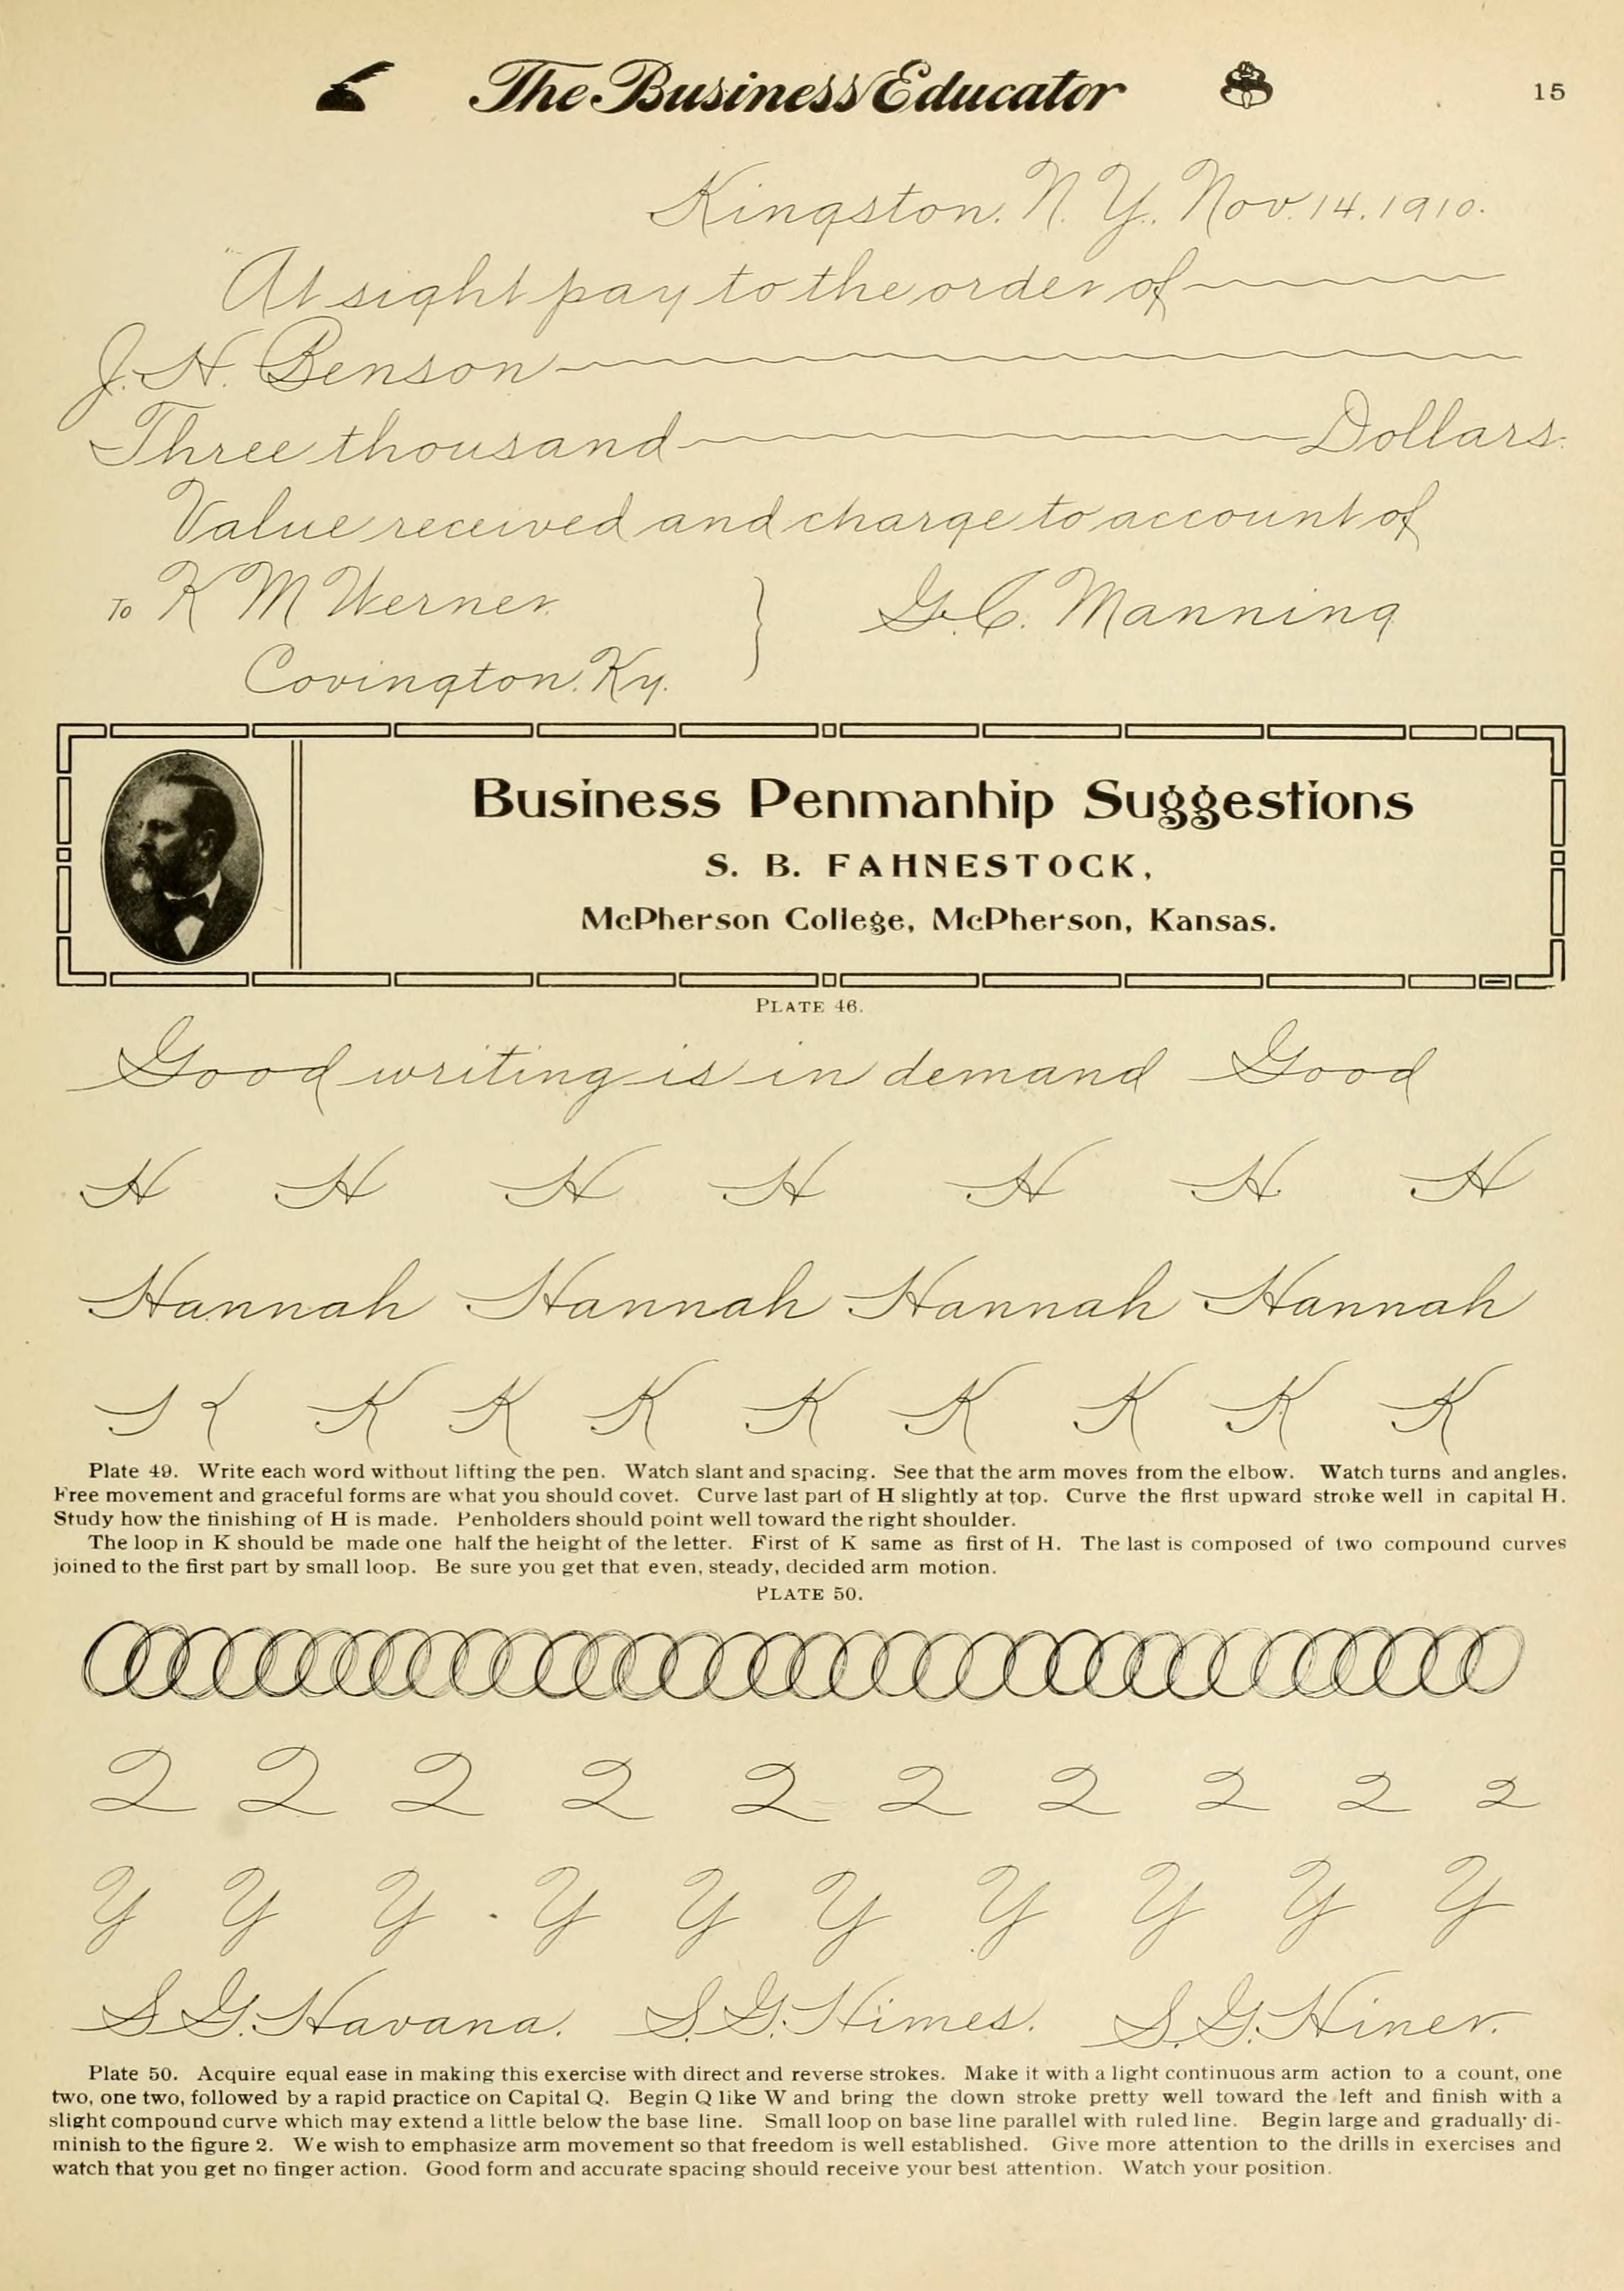 The Business Educator
15
Kingston. N. Y. Nov. 14. 1910.
At sight pay to the order of
J. H. Benson
Three thousand Dollars.
Value received and charge to account of
To K M Werner.
Covington. Ky.
G. C. Manning
Business Penmanhip Suggestions
S. B. FAHNESTOCK,
McPherson College, McPherson, Kansas.
PLATE 46.
Good writing is in demand Good
H H H H H H H
Hannah Hannah Hannah Hannah
K K K K K K K K
Plate 49. Write each word without lifting the pen. Watch slant and spacing. See that the arm moves from the elbow. Watch turns and angles.
Free movement and graceful forms are what you should covet. Curve last part of H slightly at top. Curve the first upward stroke well in capital H.
Study how the finishing of H is made. Penholders should point well toward the right shoulder.
The loop in K should be made one half the height of the letter. First of K same as first of H. The last is composed of two compound curves
joined to the first part by small loop. Be sure you get that even, steady, decided arm motion.
PLATE 50.
2 2 2 2 2 2 2 2 2 2
Y Y Y Y Y Y Y Y Y Y
S. G. Havana. S. G. Himes. S. G. Hiner.
Plate 50. Acquire equal ease in making this exercise with direct and reverse strokes. Make it with a light continuous arm action to a count, one
two, one two, followed by a rapid practice on Capital Q. Begin Q like W and bring the down stroke pretty well toward the left and finish with a
slight compound curve which may extend a little below the base line. Small loop on base line parallel with ruled line. Begin large and gradually di-
minish to the figure 2. We wish to emphasize arm movement so that freedom is well established. Give more attention to the drills in exercises and
watch that you get no finger action. Good form and accurate spacing should receive your best attention. Watch your position.